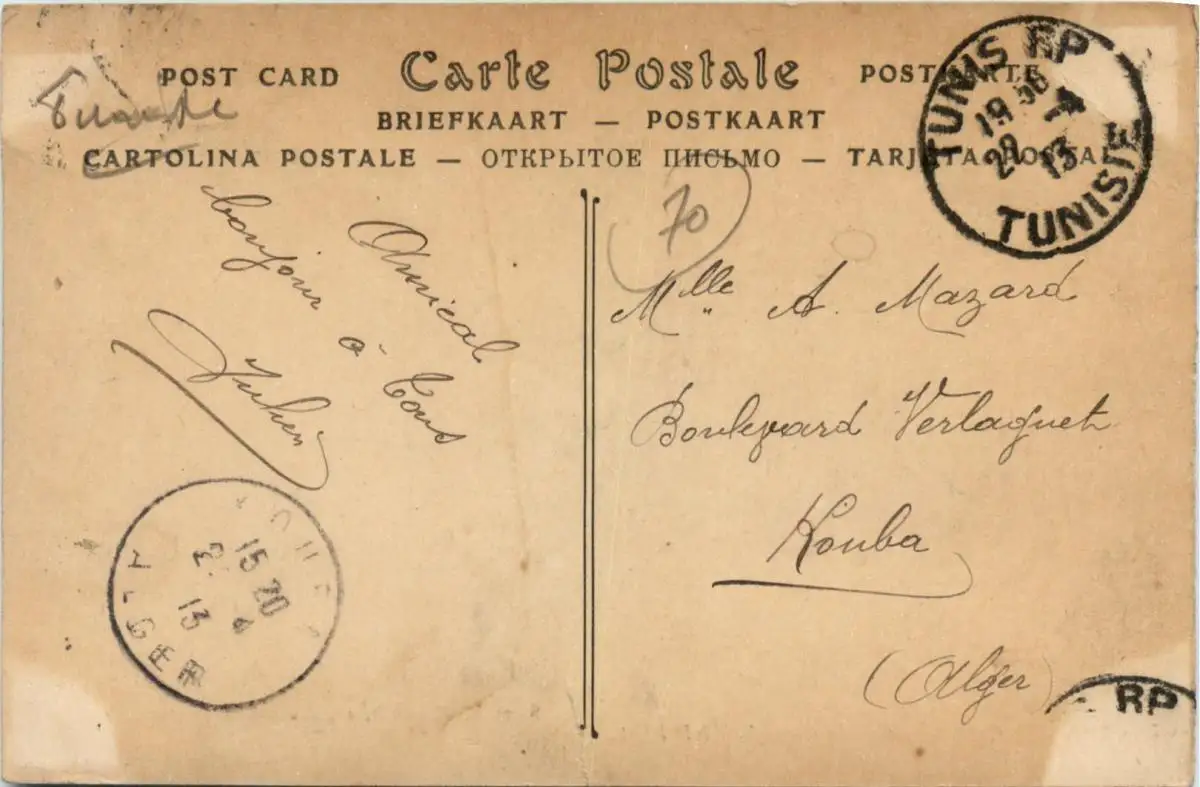 POST CARD Carte Postale POSTKARTE
BRIEFKAART — POSTKAART
CARTOLINA POSTALE — ОТКРЫТОЕ ПИСЬМО — TARJETA POSTAL
TUNIS RP
19 30
28 7 13
TUNISIE
70
Amical
bonjour à Tous
Julien
Mlle A. Mazard
Boulevard Verlaquet
Kouba
(Alger)
KOUBA
15 20
2 4
13
ALGER
RP